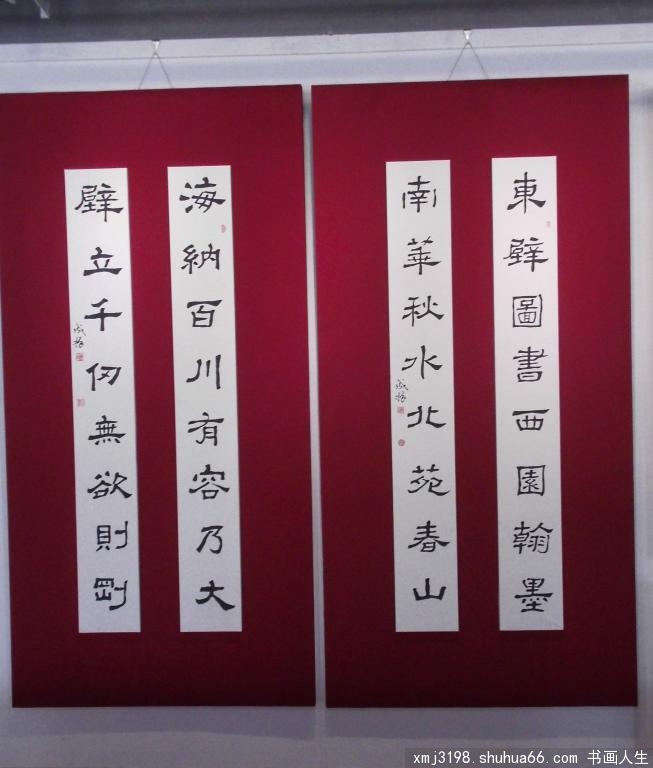 東壁圖書西園翰墨
南華秋水北苑春山
海納百川有容乃大
壁立千仞無欲則剛
xmj3198.shuhua66.com 书画人生